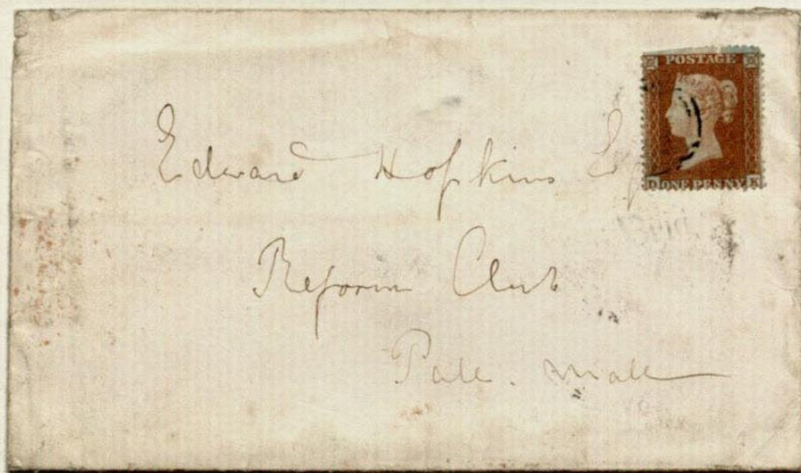 POSTAGE
ONE PENNY
Edward Hopkins Esq
Reform Club
Pall. Mall